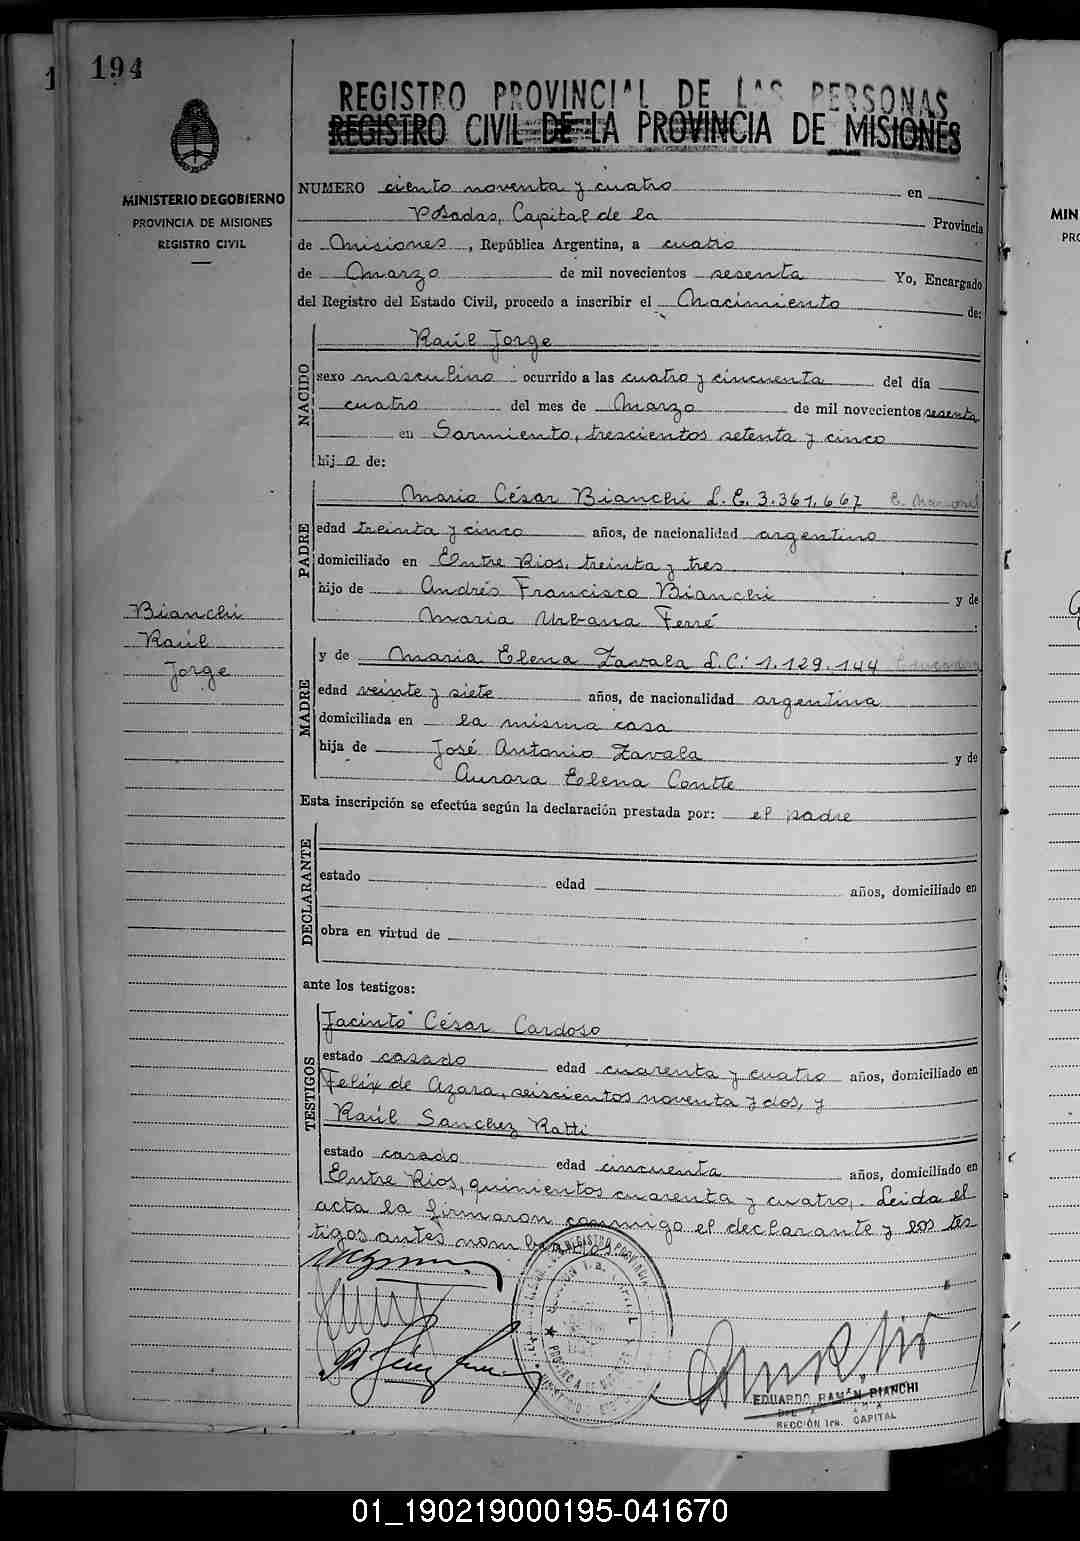 194
REGISTRO PROVINCIAL DE LAS PERSONAS
REGISTRO CIVIL DE LA PROVINCIA DE MISIONES
MINISTERIO DE GOBIERNO
PROVINCIA DE MISIONES
REGISTRO CIVIL
NUMERO ciento noventa y cuatro en
Posadas, Capital de la Provincia
de Misiones, República Argentina, a cuatro
de Marzo de mil novecientos sesenta Yo, Encargado
del Registro del Estado Civil, procedo a inscribir el Nacimiento de:
NACIDO
Raúl Jorge
sexo masculino ocurrido a las cuatro y cincuenta del día
cuatro del mes de Marzo de mil novecientos sesenta
en Sarmiento, trescientos setenta y cinco
hijo de:
PADRE
Mario César Bianchi L.E. 3.361.667
edad treinta y cinco años, de nacionalidad argentino
domiciliado en Entre Rios, treinta y tres
hijo de Andrés Francisco Bianchi y de
Maria Urbana Ferré
Bianchi
Raúl
Jorge
MADRE
y de Maria Elena Zavala L.C: 1.129.144
edad veinte y siete años, de nacionalidad argentina
domiciliada en la misma casa
hija de José Antonio Zavala y de
Aurora Elena Contte
Esta inscripción se efectúa según la declaración prestada por: el padre
DECLARANTE
estado edad años, domiciliado en
obra en virtud de
ante los testigos:
TESTIGOS
Jacinto César Cardoso
estado casado edad cuarenta y cuatro años, domiciliado en
Felix de Azara, seiscientos noventa y dos, y
Raúl Sanchez Ratti
estado casado edad cincuenta años, domiciliado en
Entre Rios, quinientos cuarenta y cuatro,. Leida el
acta la firmaron conmigo el declarante y los tes
tigos antes nombrados
EDUARDO RAMÓN BIANCHI
SECCIÓN 1ra. CAPITAL
01_190219000195-041670